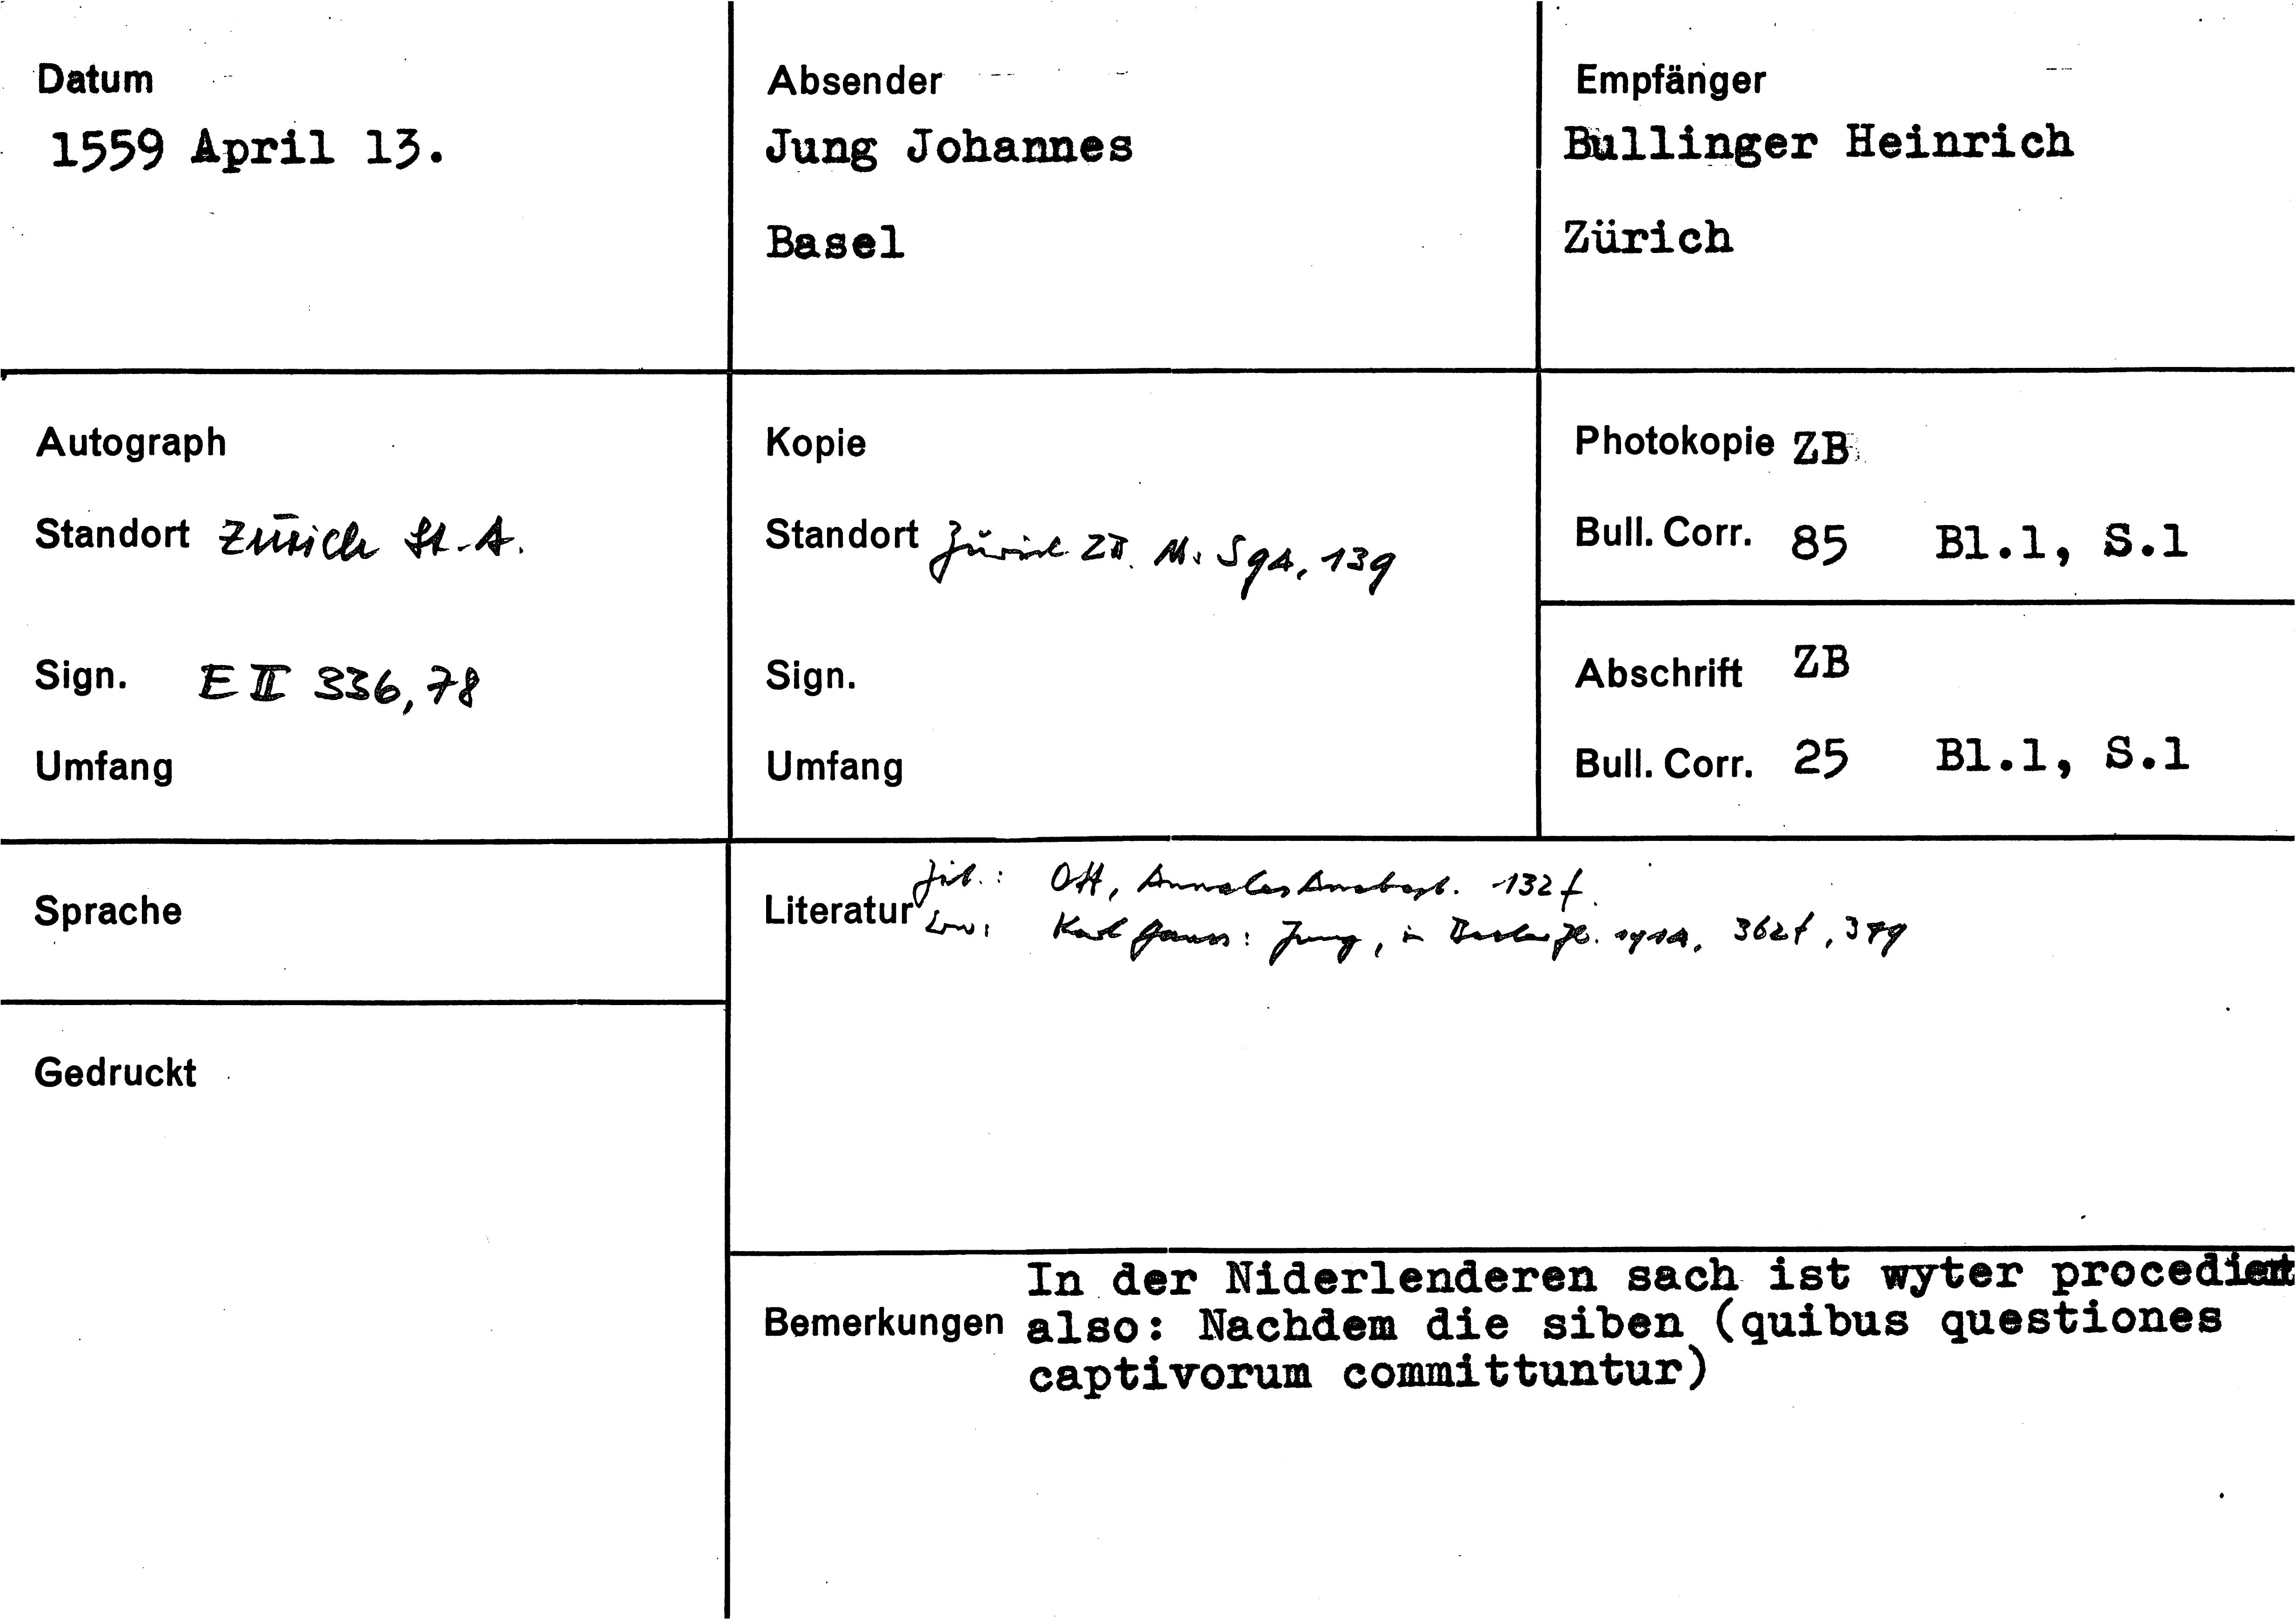 Datum
1559 April 13.
Absender
Jung Johannes
Basel
Empfänger
Bullinger Heinrich
Zürich
Autograph
Standort Zürich St.A.
Sign. E II 336,78
Umfang
Kopie
Standort Zürich ZB.
Sign.
Umfang
Photokopie ZB
Bull. Corr. 85 Bl.1, S.1
Abschrift ZB
Bull. Corr. 25 Bl.1, S.1
Sprache
Gedruckt
Literatur
Ott, Annales Anabapt. 132 f.
Karl Gauss: Jung, in 362f, 379
Bemerkungen
In der Niderlenderen sach ist wyter procediert
also: Nachdem die siben (quibus questiones
captivorum committuntur)